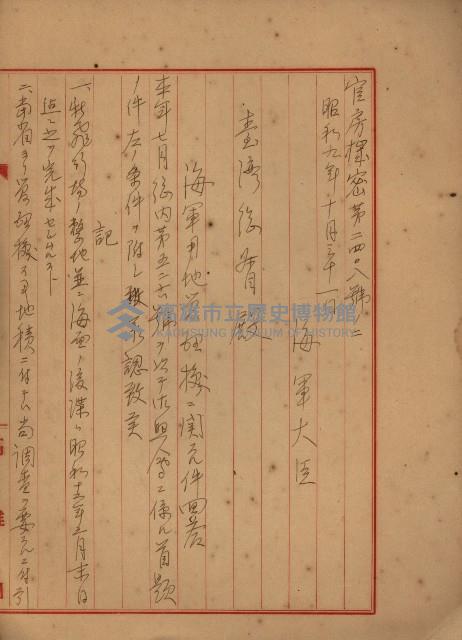 官房機密第二四〇八號ノ二
昭和九年十月三十一日 海軍大臣
臺灣總督殿
海軍用地管理換ニ関スル件回答
本年七月總內第五二六號ヲ以テ御照會ニ係ル首題
ノ件左ノ条件ヲ附シ認致
記
一、飛行場ノ整地並ニ海面ノ浚渫ハ昭和十一年三月末日
迄ニ之ヲ完成セシムルコト
二、当省ヨリ管理換スル地積ニ付テハ尚調査ヲ要スルニ付引
高雄市立歷史博物館
KAOHSIUNG MUSEUM OF HISTORY
高雄州